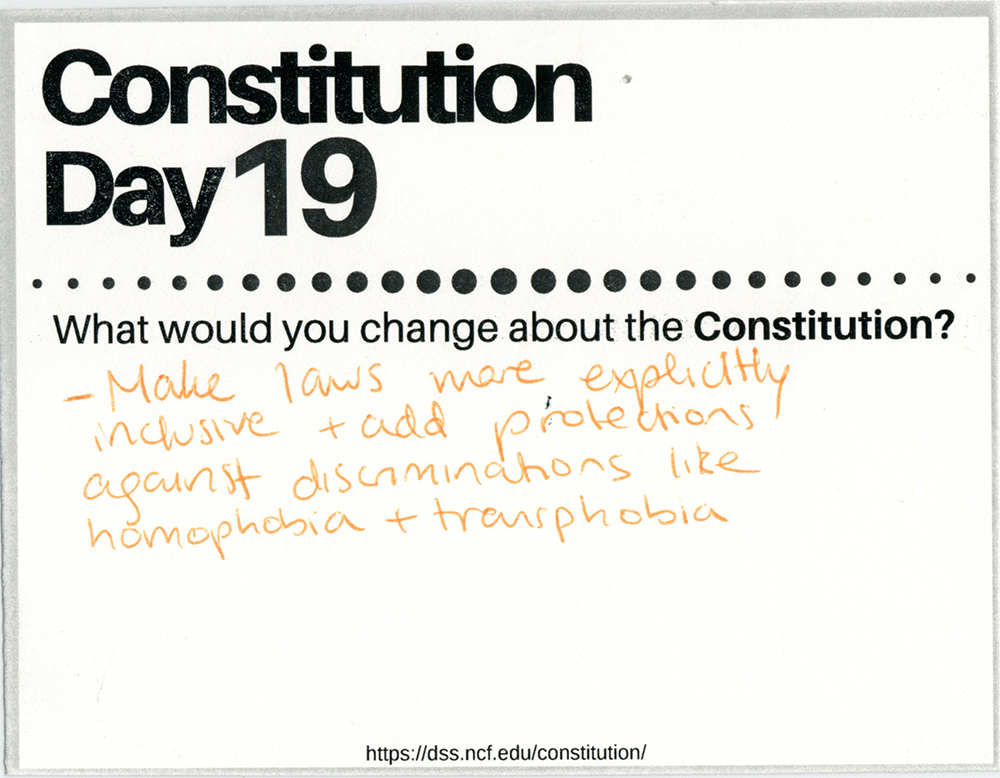 Constitution
Day 19
What would you change about the Constitution?
- Make laws more explicitly
inclusive + add protections
against discriminations like
homophobia + transphobia
https://dss.ncf.edu/constitution/